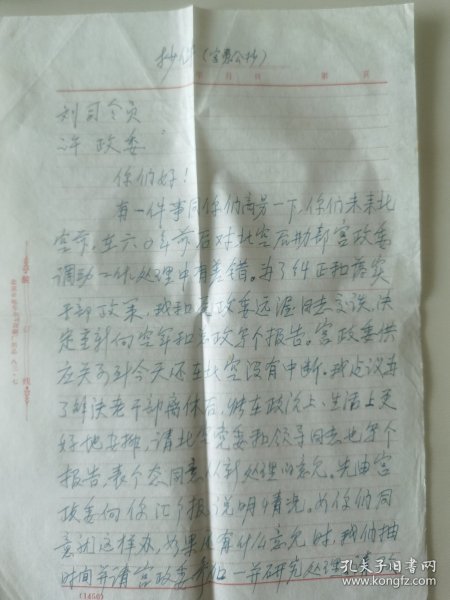 抄件（宫恩公抄）
年 月 日 第 页
刘司令员
许政委
你们好！
有一件事同你们商另一下，你们未来北
空前，在六0年前后对北空后勤部宫政委
调动工作处理中有差错。为了纠正和落实
干部政策，我和 政委 同志交谈，决
定重新向空军和 政写个报告。宫政委供
应关系到今天还在北空没有中断。我建议为
了解决老干部离休后，能在政治上、生活上更
好地安排，请北空党委和领导同志也写个
报告，表个态同意从新处理的意见。先由宫
政委向你汇个报说明情况。如你们同
意就这样办，如果还有什么意见时，我们抽
时间并请宫政委 一并研究处理。
(1450)
孔夫子旧书网